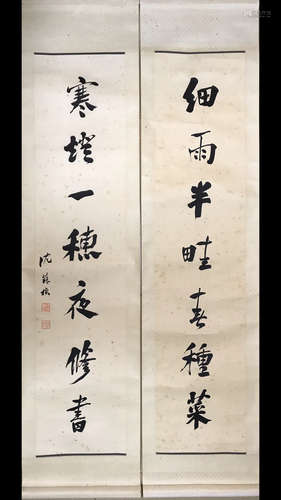 細雨半畦春種菜
寒燈一穗夜修書
沈